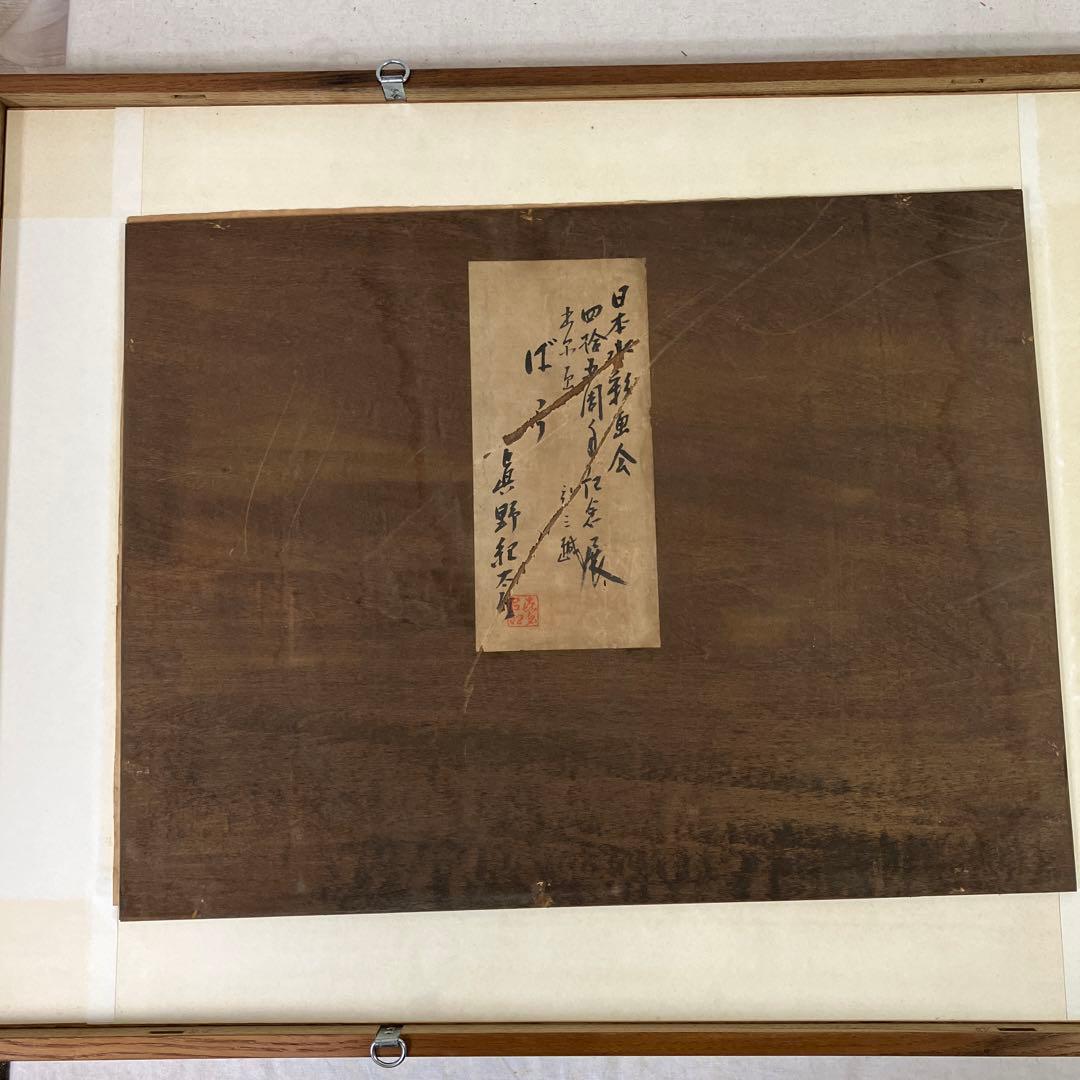 日本水彩画会
四拾五周年紀念展
出品画 於三越
ばら
眞野紀太郎